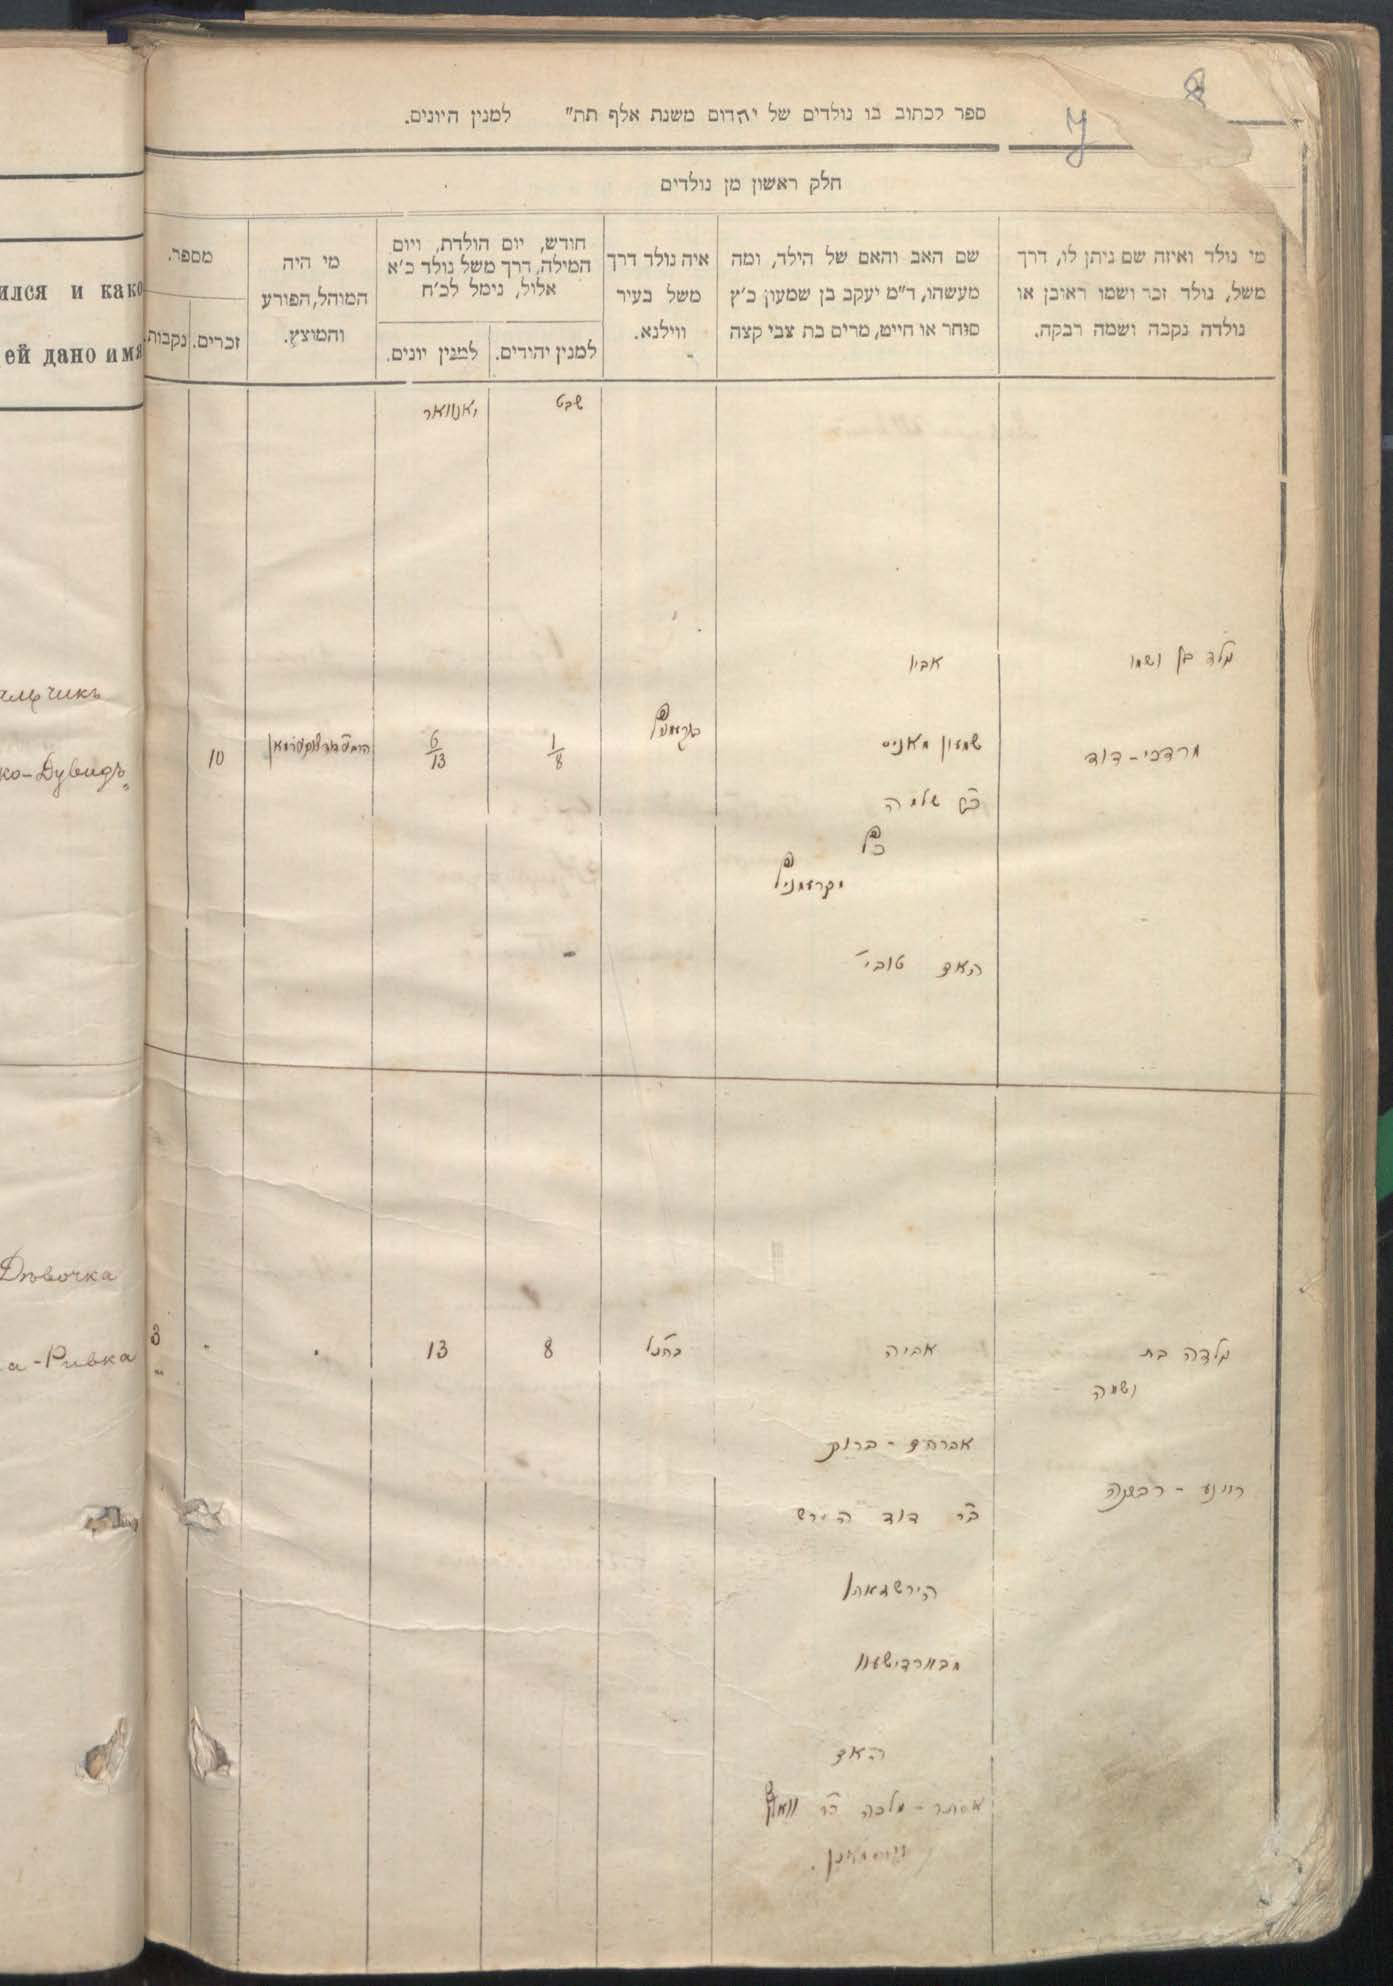 8
7
ספר לכתוב בו נולדים של יהדום משנת אלף תת״ למנין היונים.
חלק ראשון מן נולדים
מי נולד ואיזה שם ניתן לו, דרך
משל, נולד זכר ושמו ראובן או
נולדה נקבה ושמה רבקה.
שם האב והאם של הילד, ומה
מעשהו, ד״מ יעקב בן שמעון כ׳ץ
סוחר או חייט, מרים בת צבי קצה
איה נולד דרך
משל בעיר
ווילנא.
חודש, יום הולדת, ויום
המילה, דרך משל נולד כ׳א
אלול, נימל לכ׳ח
למנין יהודים.
למנין יונים.
מי היה
המוהל, הפורע
והמוצץ.
מספר.
זכרים.
נקבות.
שבט
יאנוואר
ילד בן ושמו
מרדכי - דוד
אביו
שמעון מאניס
שלמה
האם טובי׳
1/8
6/13
10
ילדה בת
ושמה
רבקה
אביה
אברהם - ברוך
ב״ר דוד הירש
האם
אסתר - מלכה
8
13
3
ился и како
ей дано имя
альчикъ
ко-Дувидъ
Дѣвочка
а-Ривка